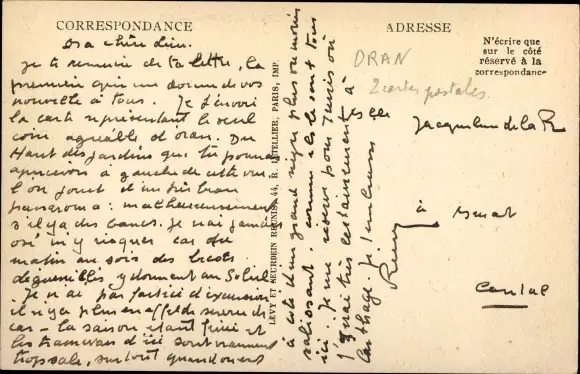 CORRESPONDANCE
ADRESSE
N'écrire que
sur le côté
réservé à la
correspondance
ORAN
2 cartes postales.
Ma chère
Je te remercie de ta lettre, la
première qui me donne de vos
nouvelles à tous. Je t'envoie
la carte représentant le seul
coin agréable d'Oran. Du
Haut des jardins que tu pourras
apercevoir à gauche de cette vue
l'on jouit d'un très beau
panorama : malheureusement
s'il y a des bancs. Je n'ai jamais
osé m'y risquer car du
matin au soir des
déguenillés y dorment au Soleil
Je n'ai pas fait ici d'excursion
il n'y a plus en effet de service de
car - la saison étant finie et
les tramways d'ici sont vraiment
trop sale, surtout quand on est
à côté d'un grand nègre plus ou moins
salissant. comme ils le sont tous
ici. Je me réserve pour Tunis où
j'irai très certainement à
Carthage. Je t'embrasse
Rémy
LEVY ET NEURDEIN REUNIS, 44, R. LETELLIER, PARIS, IMP.
Jacqueline de la
à Murat
Cantal